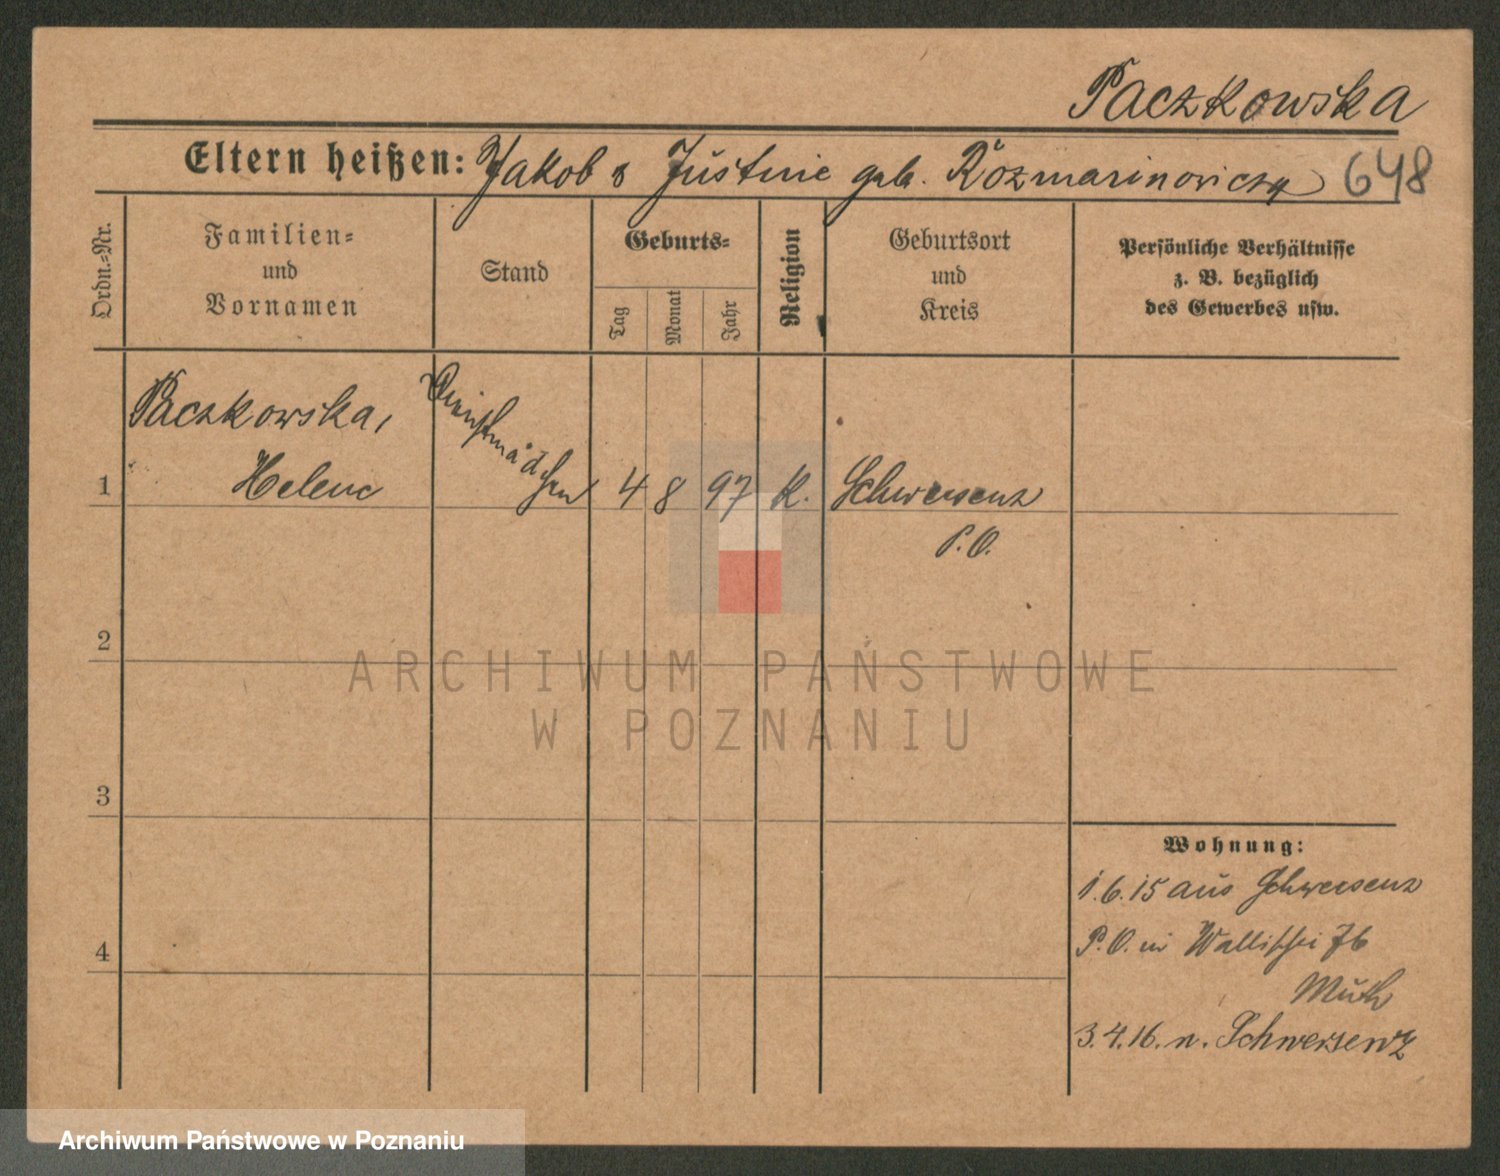 Paczkowska
Eltern heißen: Jakob & Justine geb. Rozmarinowicz
648
Ordn.-Nr.
Familien-
und
Vornamen
Stand
Geburts-
Tag
Monat
Jahr
Religion
Geburtsort
und
Kreis
Persönliche Verhältnisse
z. B. bezüglich
des Gewerbes usw.
Paczkowska,
Dienstmädchen
1 Helene 4 8 97 K. Schwersenz
P. O.
2
ARCHIWUM PAŃSTWOWE
W POZNANIU
3
Wohnung:
1.6.15 aus Schwersenz
4 P. O. in Wallischei 76
Muth
3.4.16. n. Schwersenz
Archiwum Państwowe w Poznaniu